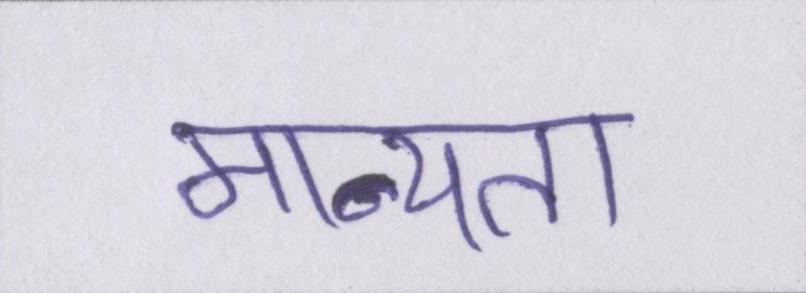 मान्यता